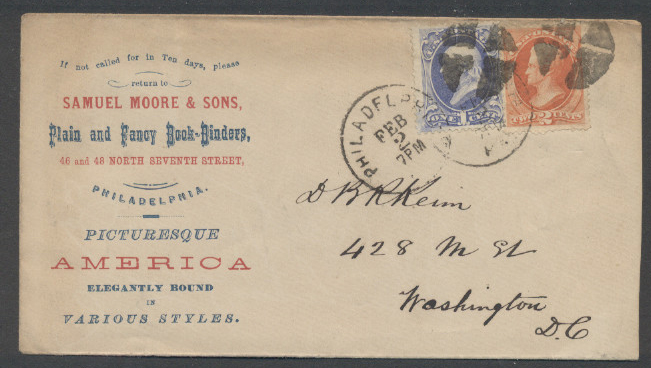 If not called for in Ten days, please
return to
SAMUEL MOORE & SONS,
Plain and Fancy Book-Binders,
46 and 48 NORTH SEVENTH STREET,
PHILADELPHIA.
PICTURESQUE
AMERICA
ELEGANTLY BOUND
IN
VARIOUS STYLES.
PHILADELPH
FEB
2
7PM
CENTS
D B R Keim
428 M St
Washington
D.C